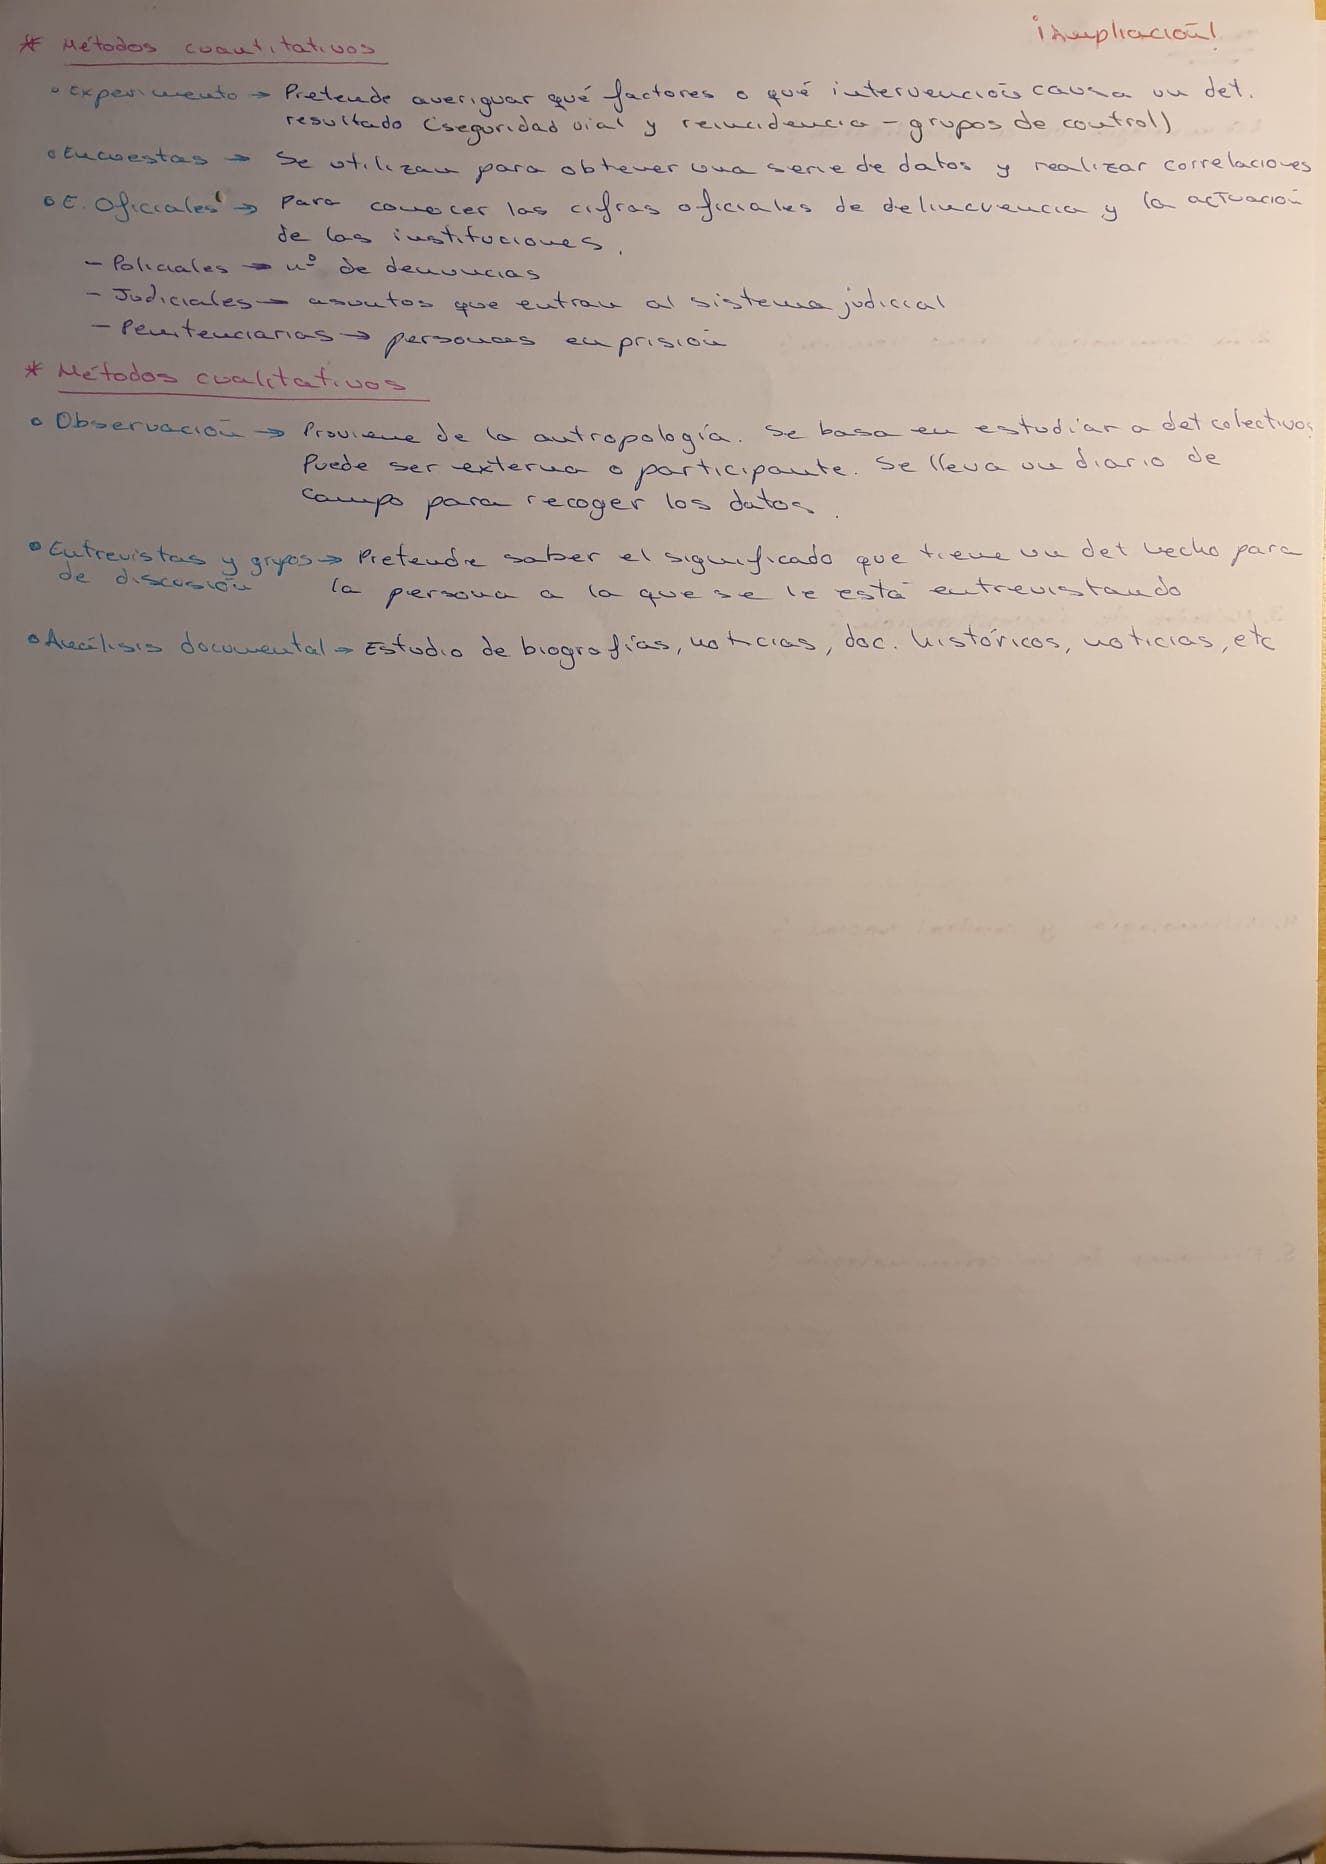 ¡Ampliación!
* Métodos cuantitativos
• Experimento → Pretende averiguar qué factores o qué intervención causa un det.
resultado (seguridad vial y reincidencia - grupos de control)
• Encuestas → Se utilizan para obtener una serie de datos y realizar correlaciones
• E. Oficiales → Para conocer las cifras oficiales de delincuencia y la actuación
de las instituciones.
- Policiales → nº de denuncias
- Judiciales → asuntos que entran al sistema judicial
- Penitenciarias → personas en prisión
* Métodos cualitativos
• Observación → Proviene de la antropología. Se basa en estudiar a det colectivos
Puede ser externa o participante. Se lleva un diario de
campo para recoger los datos.
• Entrevistas y grupos → Pretende saber el significado que tiene un det hecho para
de discusión la persona a la que se le está entrevistando
• Análisis documental → Estudio de biografías, noticias, doc. históricos, noticias, etc